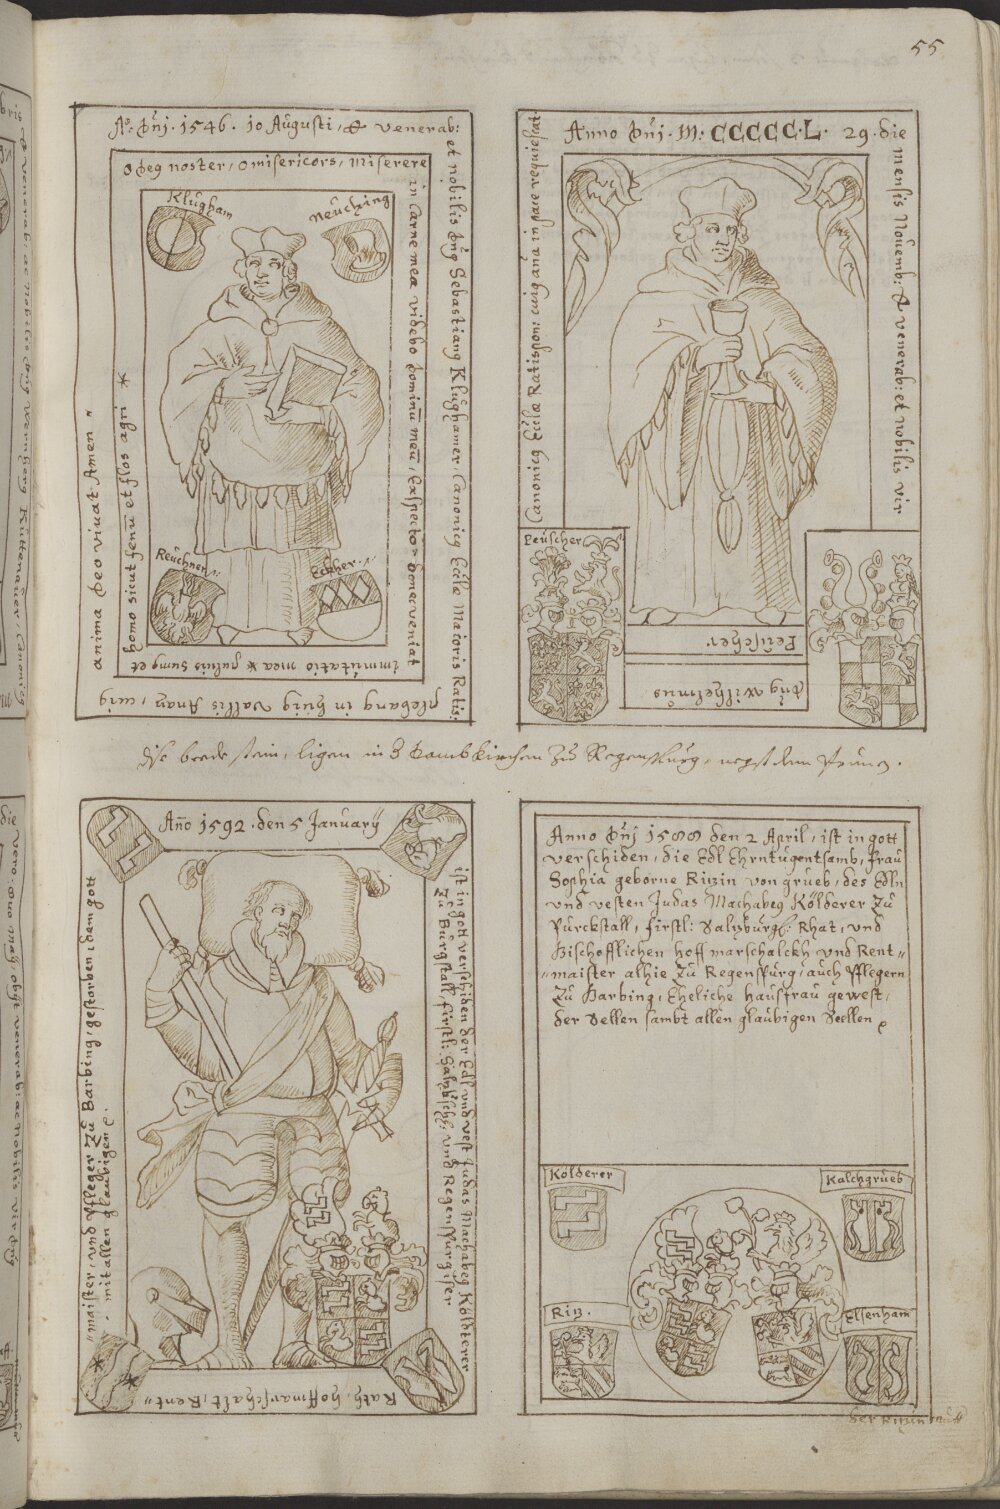 55
A°. Dnj. 1546. 10 Augusti, &c venerab:
et nobilis dng Sebastiang Klughamer, Canonicg Eccle Maioris Ratis:
plebang in huig vallis Anag, cuig
anima Deo vivat Amen
O Deg noster, O misericors, Miserere
in carne mea videbo dominū meū, Exspecto donec veniat
immutatio mea * pulvis sumg et
homo sicut fenū et flos agri *
Klugham
Neuching
Reuchner
Eckher
Anno Dnj. M: CCCCC.L. 29. die
mensis Novemb: & venerab: et nobilis vir
Dng Wilhelmus
Peuscher
Canonicg Eccle Ratispon: cuig aña in pace requiescat
Peuscher
Dise beede stein, ligen in Dombkirchen Zu Regenspurg, negst dem
Año 1592. den 5 January
ist in gott verschiden der Edl und vest Judas Machabeg Köldterer
Zu Burgstall, firstl: Saltzbischf: und Regenspurgiser
Rath, hoffmarschalt, Rent"
"maister, und Pfleger Zu Barbing, gestorben, dem gott
mit allen glaubigen
Anno Dnj 1588 den 2 April, ist in gott
verschiden, die Edl Ehrntugentsamb, frau
Sophia geborne Ritzin von grueb, des Edln
und vesten Judas Machabeg Kölderer Zu
Purckstall, firstl: Saltzburg: Rhat, und
Bischofflichen hoff marschalckh und Rent"
"maister alhie Zu Regenspurg, auch Pflegern
Zu Barbing, Eheliche hausfrau gewest,
der Sellen sambt allen glaubigen Seellen
Kölderer
Kalchgrueb
Ritz.
Elsenham